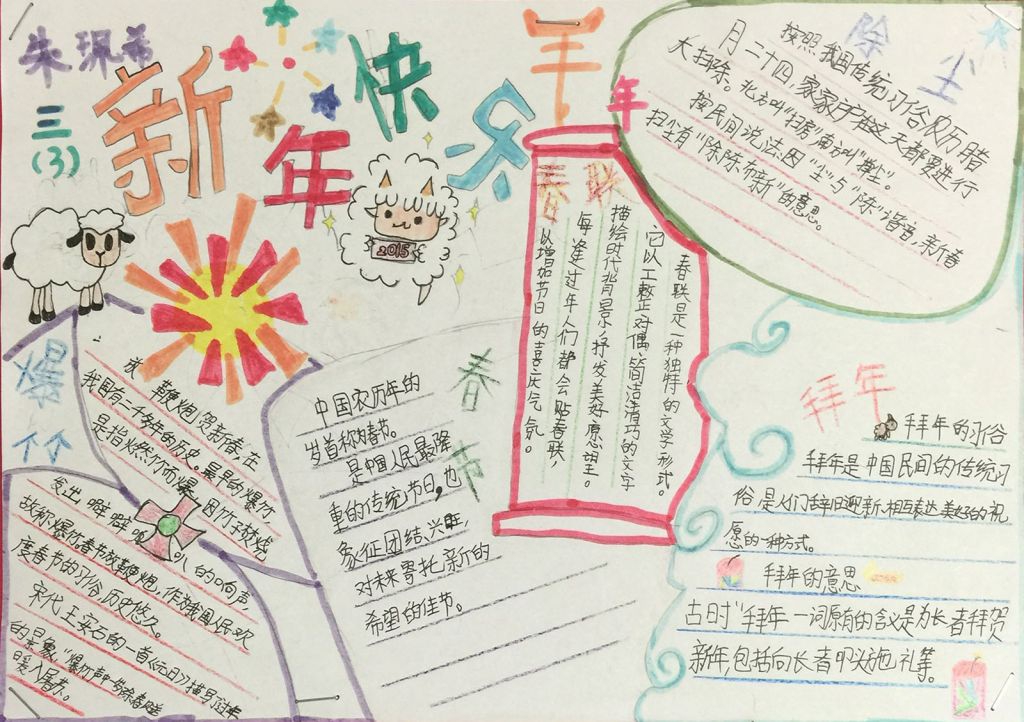 朱珮希
三(3)
新年快乐
羊年
2015
除尘
按照我国传统习俗农历腊
月二十四,家家户户在这天都要进行
大扫除。北方叫"扫房"南方叫"掸尘"。
按民间说法:因"尘"与"陈"谐音,新春
扫尘有"除陈布新"的意思。
春联
春联是一种独特的文学形式。
它以工整对偶、简洁清巧的文字
描绘时代背景,抒发美好愿望。
每逢过年人们都会贴春联,
以增加节日的喜庆气氛。
爆竹
放鞭炮贺新春,在
我国有二千多年的历史。最早的爆竹,
是指火燃竹而爆,因竹子焚烧
发出"噼噼啪啪"的响声,
故称爆竹。春节放鞭炮,作为我国人民欢
度春节的习俗,历史悠久。
宋代王安石的一首《元日》描写过年
的景象"爆竹声中
暖入屠苏。
春节
中国农历年的
岁首称为春节。
是中国人民最隆
重的传统节日,也
象征团结、兴旺,
对未来寄托新的
希望的佳节。
拜年
拜年的习俗
拜年是中国民间的传统习
俗,是人们辞旧迎新、相互表达美好的祝
愿的一种方式。
拜年的意思
古时"拜年一词原有的含义是为长者拜贺
新年,包括向长者叩头施礼等。